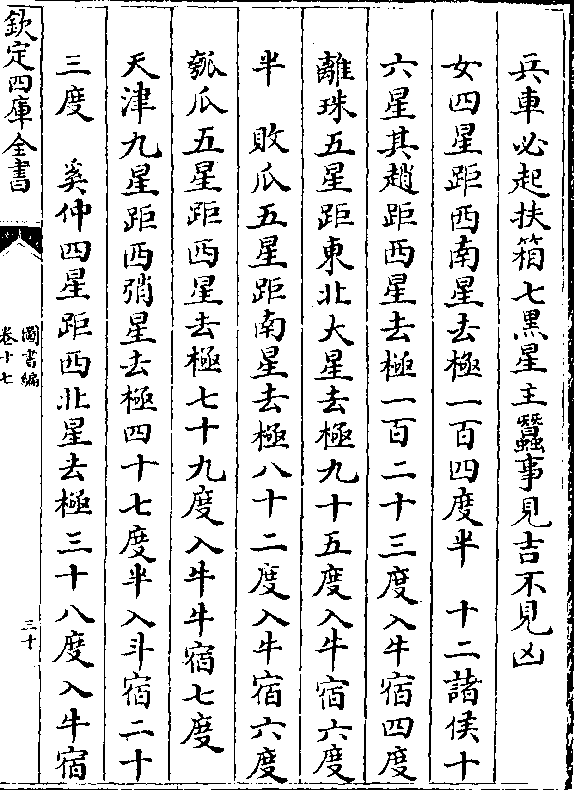 兵車必起扶箱七黒星主蠶事見吉不見凶
女四星距西南星去極一百四度半　十二諸侯十
六星其趙距西星去極一百二十三度入牛宿四度
離珠五星距東北大星去極九十五度入牛宿六度
半　敗瓜五星距南星去極八十二度入牛宿六度
瓠瓜五星距西星去極七十九度入牛牛宿七度
天津九星距西弰星去極四十七度半入斗宿二十
三度　奚仲四星距西北星去極三十八度入牛宿
欽定四庫全書
圖書編
卷十七
三十